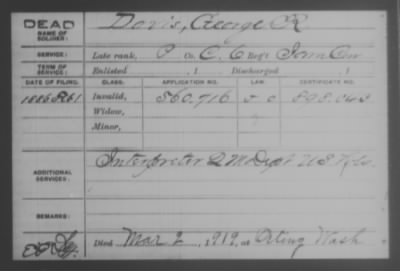 DEAD
NAME OF SOLDIER:
Davis, George R
SERVICE:
Late rank, P Co. C, 6 Reg't Iowa Cav
TERM OF SERVICE:
Enlisted , 1 Discharged , 1
DATE OF FILING. CLASS. APPLICATION NO. LAW. CERTIFICATE NO.
Invalid, 560.716
Widow,
Minor,
ADDITIONAL SERVICES:
Interpreter Q M Dept U S
REMARKS:
Died Mar 2, 1919, at Orting Wash